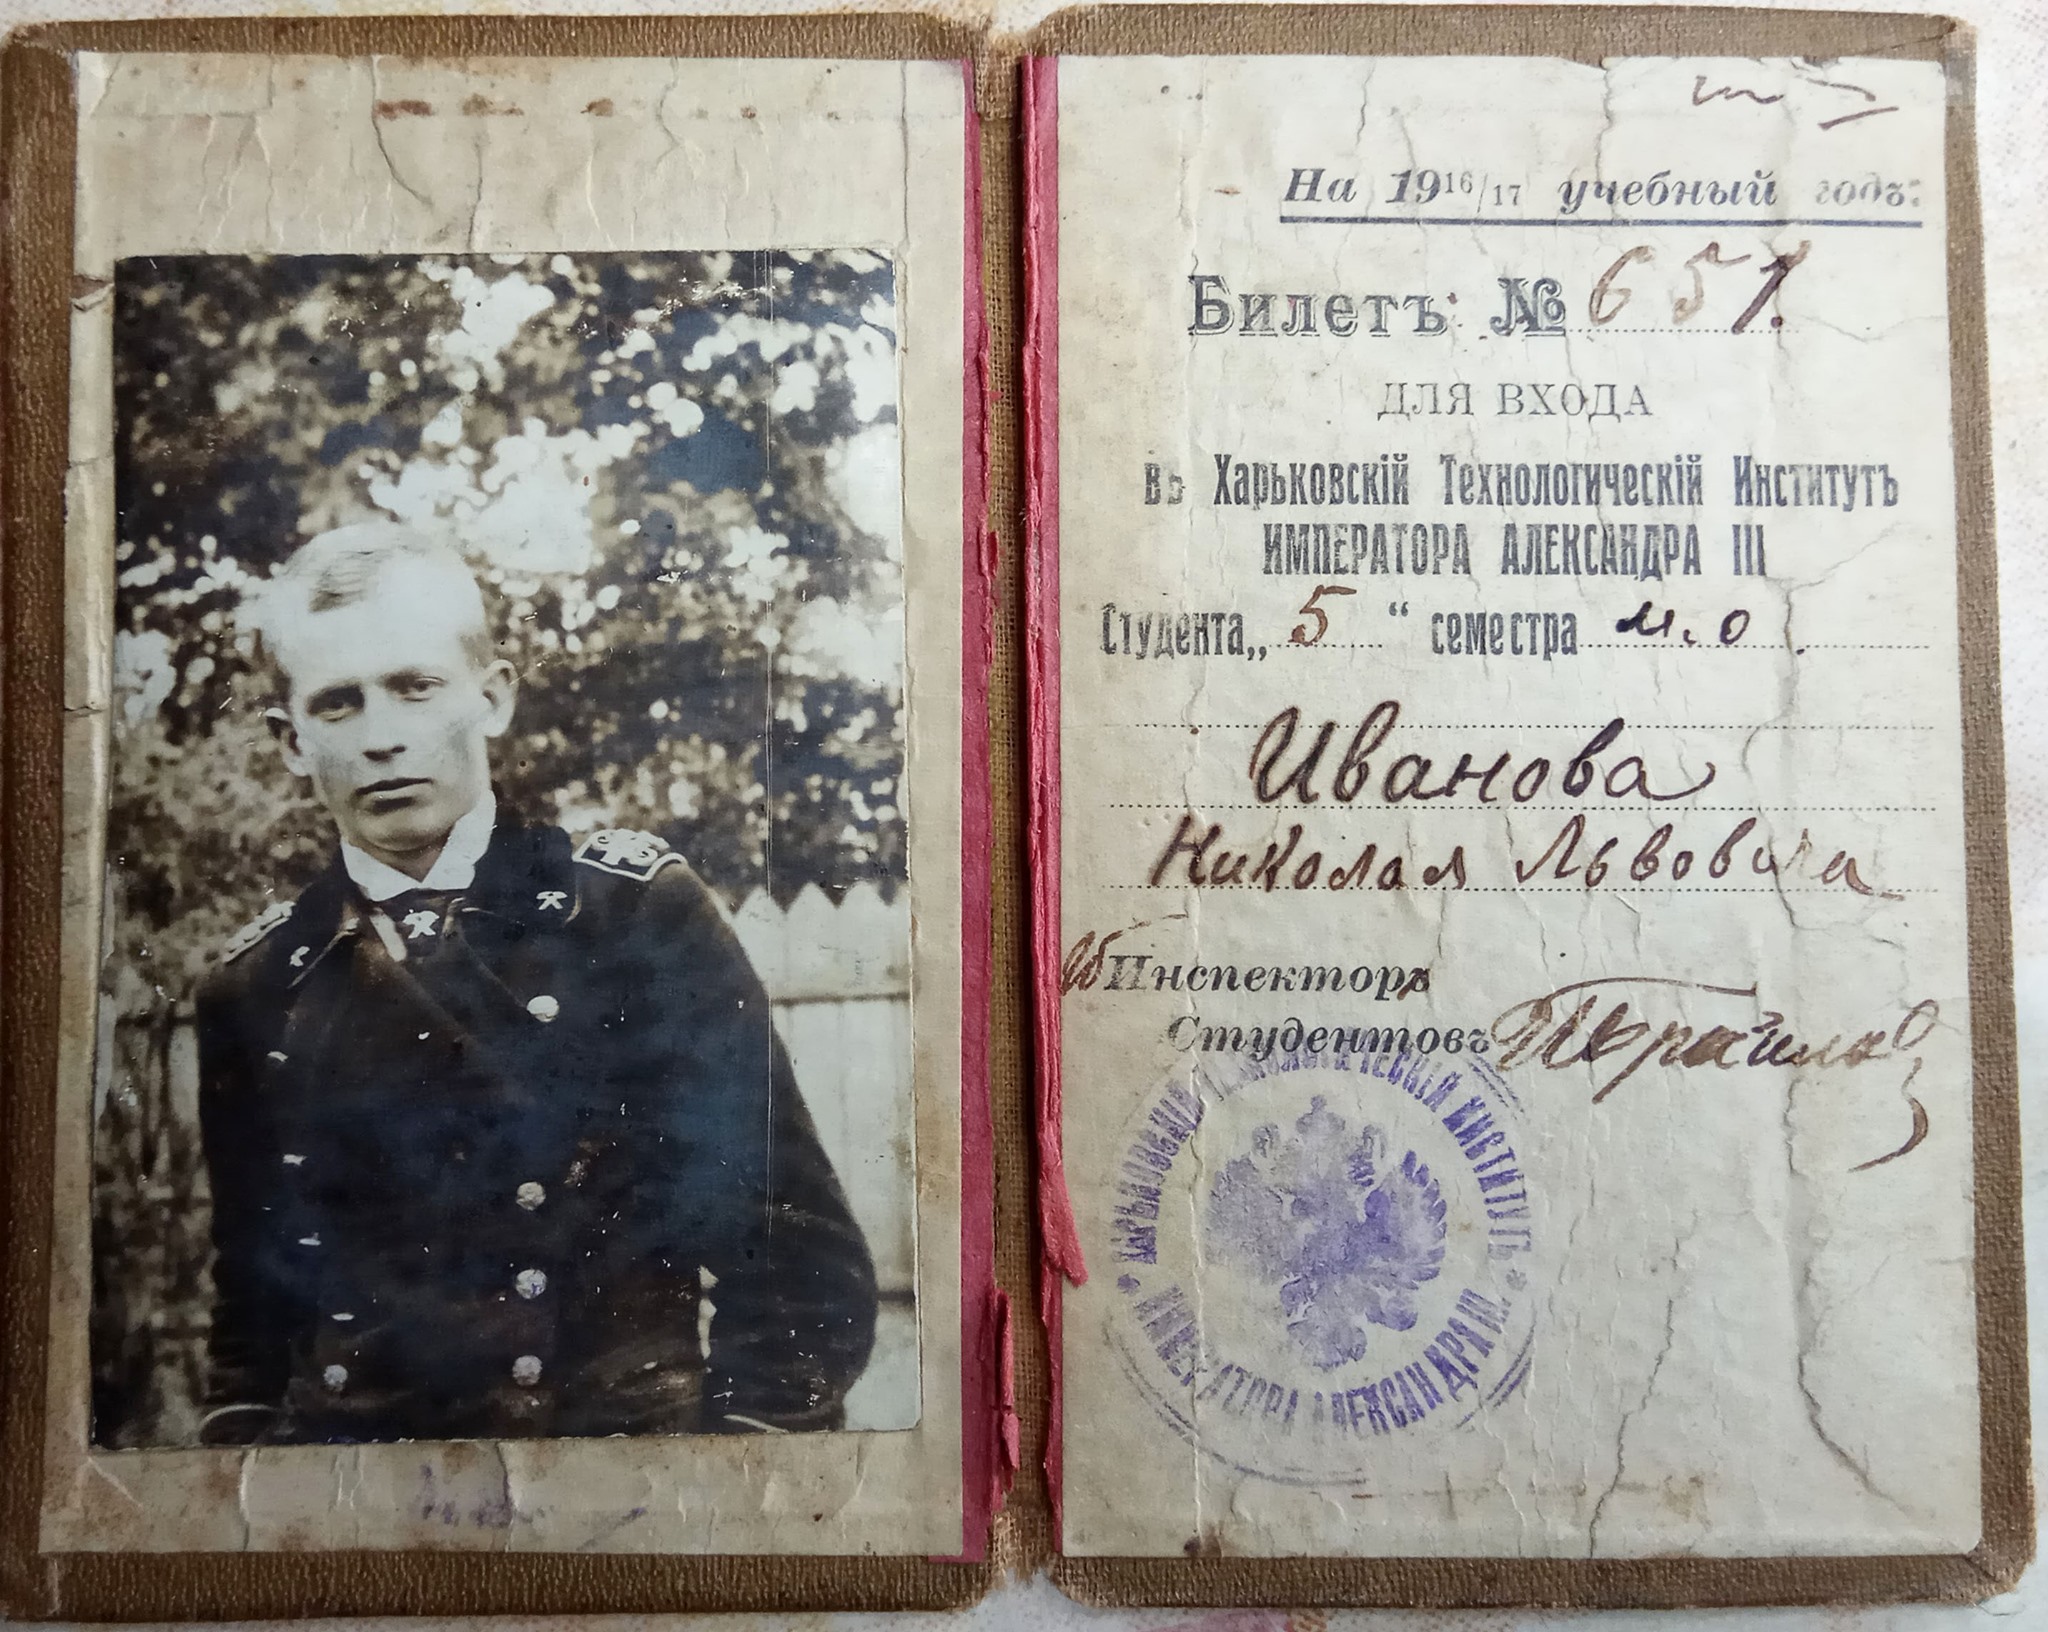 На 1916/17 учебный годъ.
Билетъ № 651.
ДЛЯ ВХОДА
въ Харьковскій Технологическій Институтъ
ИМПЕРАТОРА АЛЕКСАНДРА III
Студента „5“ семестра м.о.
Иванова
Николая Львовича
Инспекторъ
Студентовъ
* ХАРЬКОВСКІЙ ТЕХНОЛОГИЧЕСКІЙ ИНСТИТУТЪ *
ИМПЕРАТОРА АЛЕКСАНДРА III.